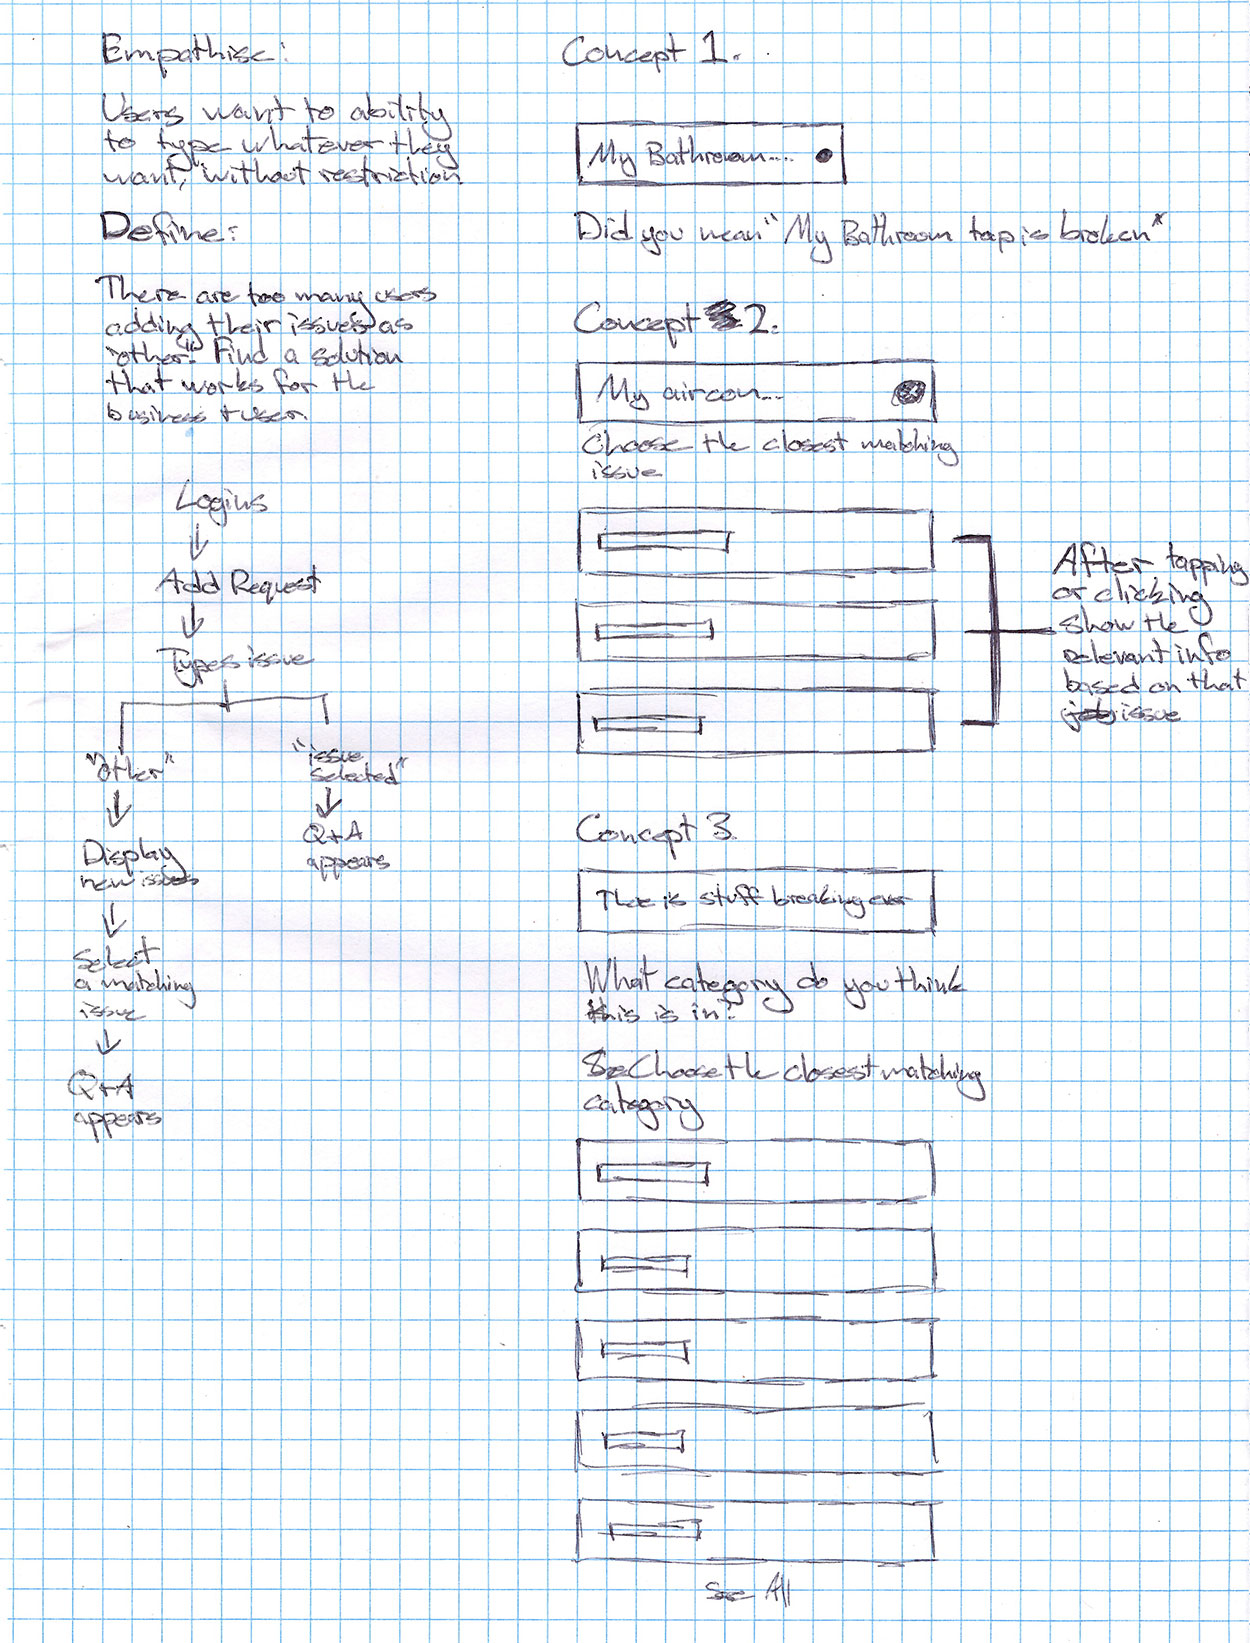 Empathise:
Users want to ability
to type whatever they
want, without restriction.
Define:
There are too many users
adding their issues as
"other". Find a solution
that works for the
business + user.
Logins
Add Request
Types issue
"other"
"issue
selected"
Display
new issues
Q+A
appears
Select
a matching
issue
Q+A
appears
Concept 1.
My Bathroom...
Did you mean "My Bathroom tap is broken"
Concept 2.
My aircon...
Choose the closest matching
issue
After tapping
or clicking
show the
relevant info
based on that
issue
Concept 3
is stuff breaking
What category do you think
this is in?
Choose the closest matching
category
See All